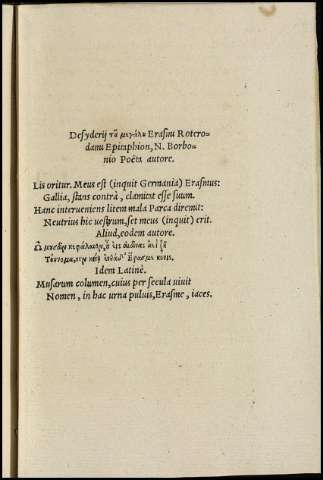 Desyderij τοῦ μεγάλου Erasmi Rotero-
dami Epitaphion, N. Borbo-
nio Poëta autore.
Lis oritur. Meus est (inquit Germania) Erasmus:
Gallia, stans contrà, clamitat esse suum.
Hanc interveniens litem mala Parca diremit:
Neutrius hic vestrum, set meus (inquit) erit.
Aliud, eodem autore.
Ω μουσῶν
Τοὔνομα, κόνις,
Idem Latinè.
Musarum columen, cuius per secula uiuit
Nomen, in hac urna puluis, Erasme, iaces.